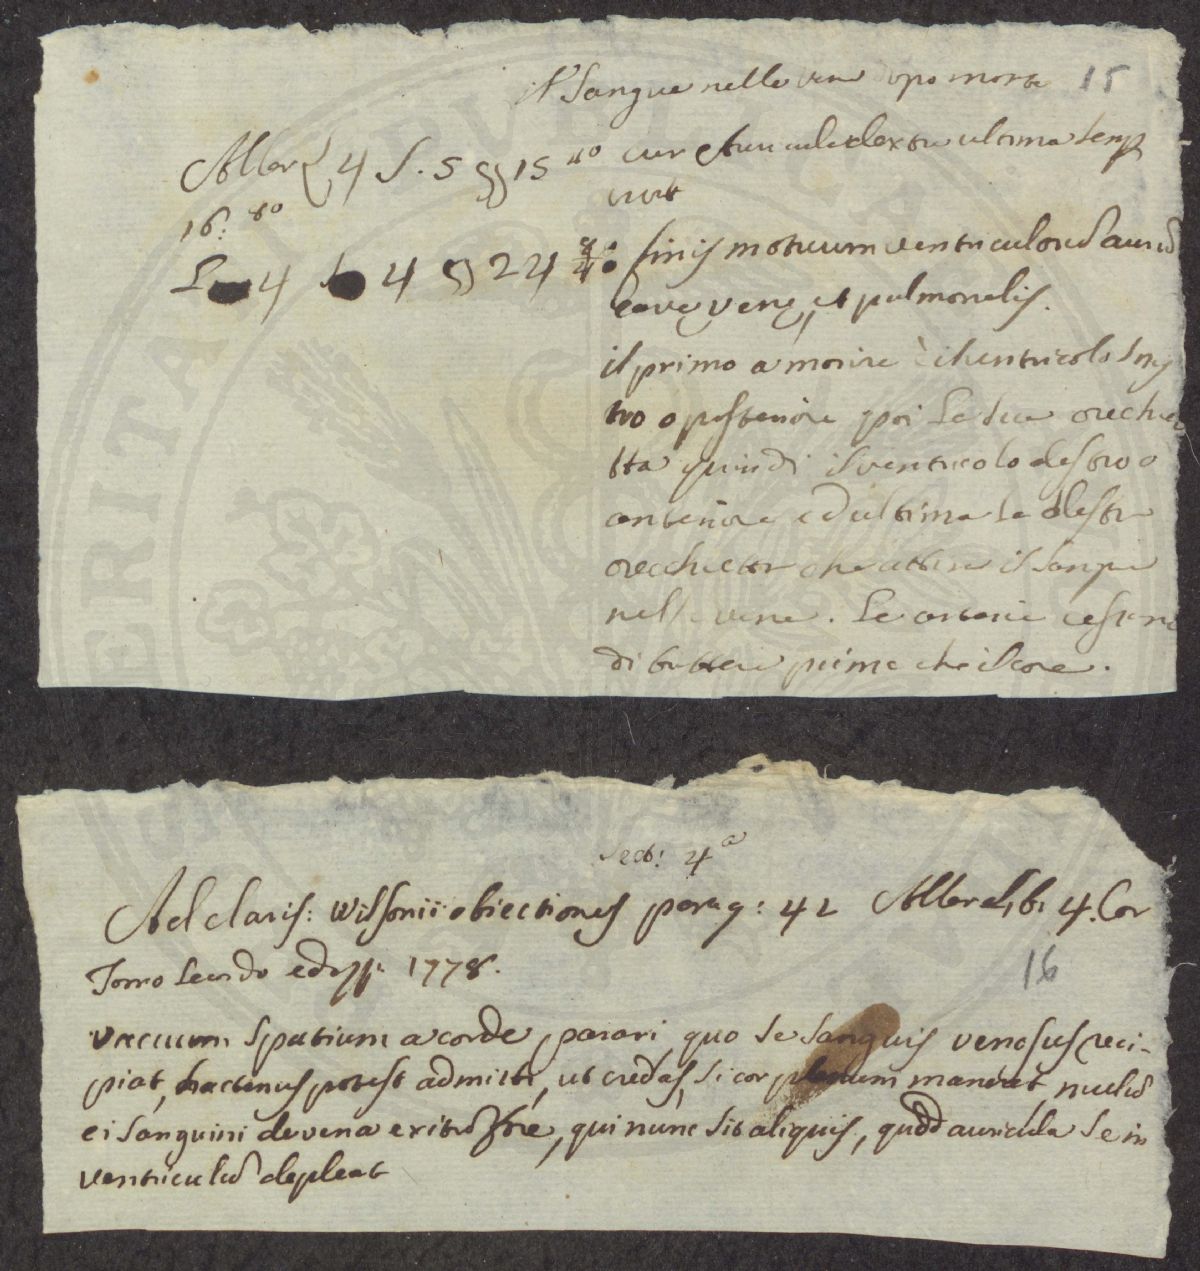 Il Sangue nelle vene dopo morte 15
Aller L 4 S. 5 §§ 15 4to cur Auricula dextra ultima temp
16: 8o vivit
L 4 S 4 § 2 24 8 4 finis motuum ventriculorū auriū
cavę venę, et pulmonalis.
il primo a morire è il ventricolo Siny
tro o posteriore poi la sua orechie
tta quindi il ventricolo destro o
anteriore ed ultima la destra
orecchietta che attira il sangue
nelle vene. Le arterie cessano
di battere prima che il core.
Sect: 4a
Ad claris: Wilsonii obiectiones parag: 42 Aller Lib: 4. Cor
Tomo Secondo 1778. 16
vacuum spatium a corde parari quo se sanguis venosus reci-
piat, hactenus potest admitti, ut credas, si cor plenum maneat, nullū
ei sanguini de vena exitū fore, qui nunc sit aliquis, quod auricula se in
ventriculū depleat